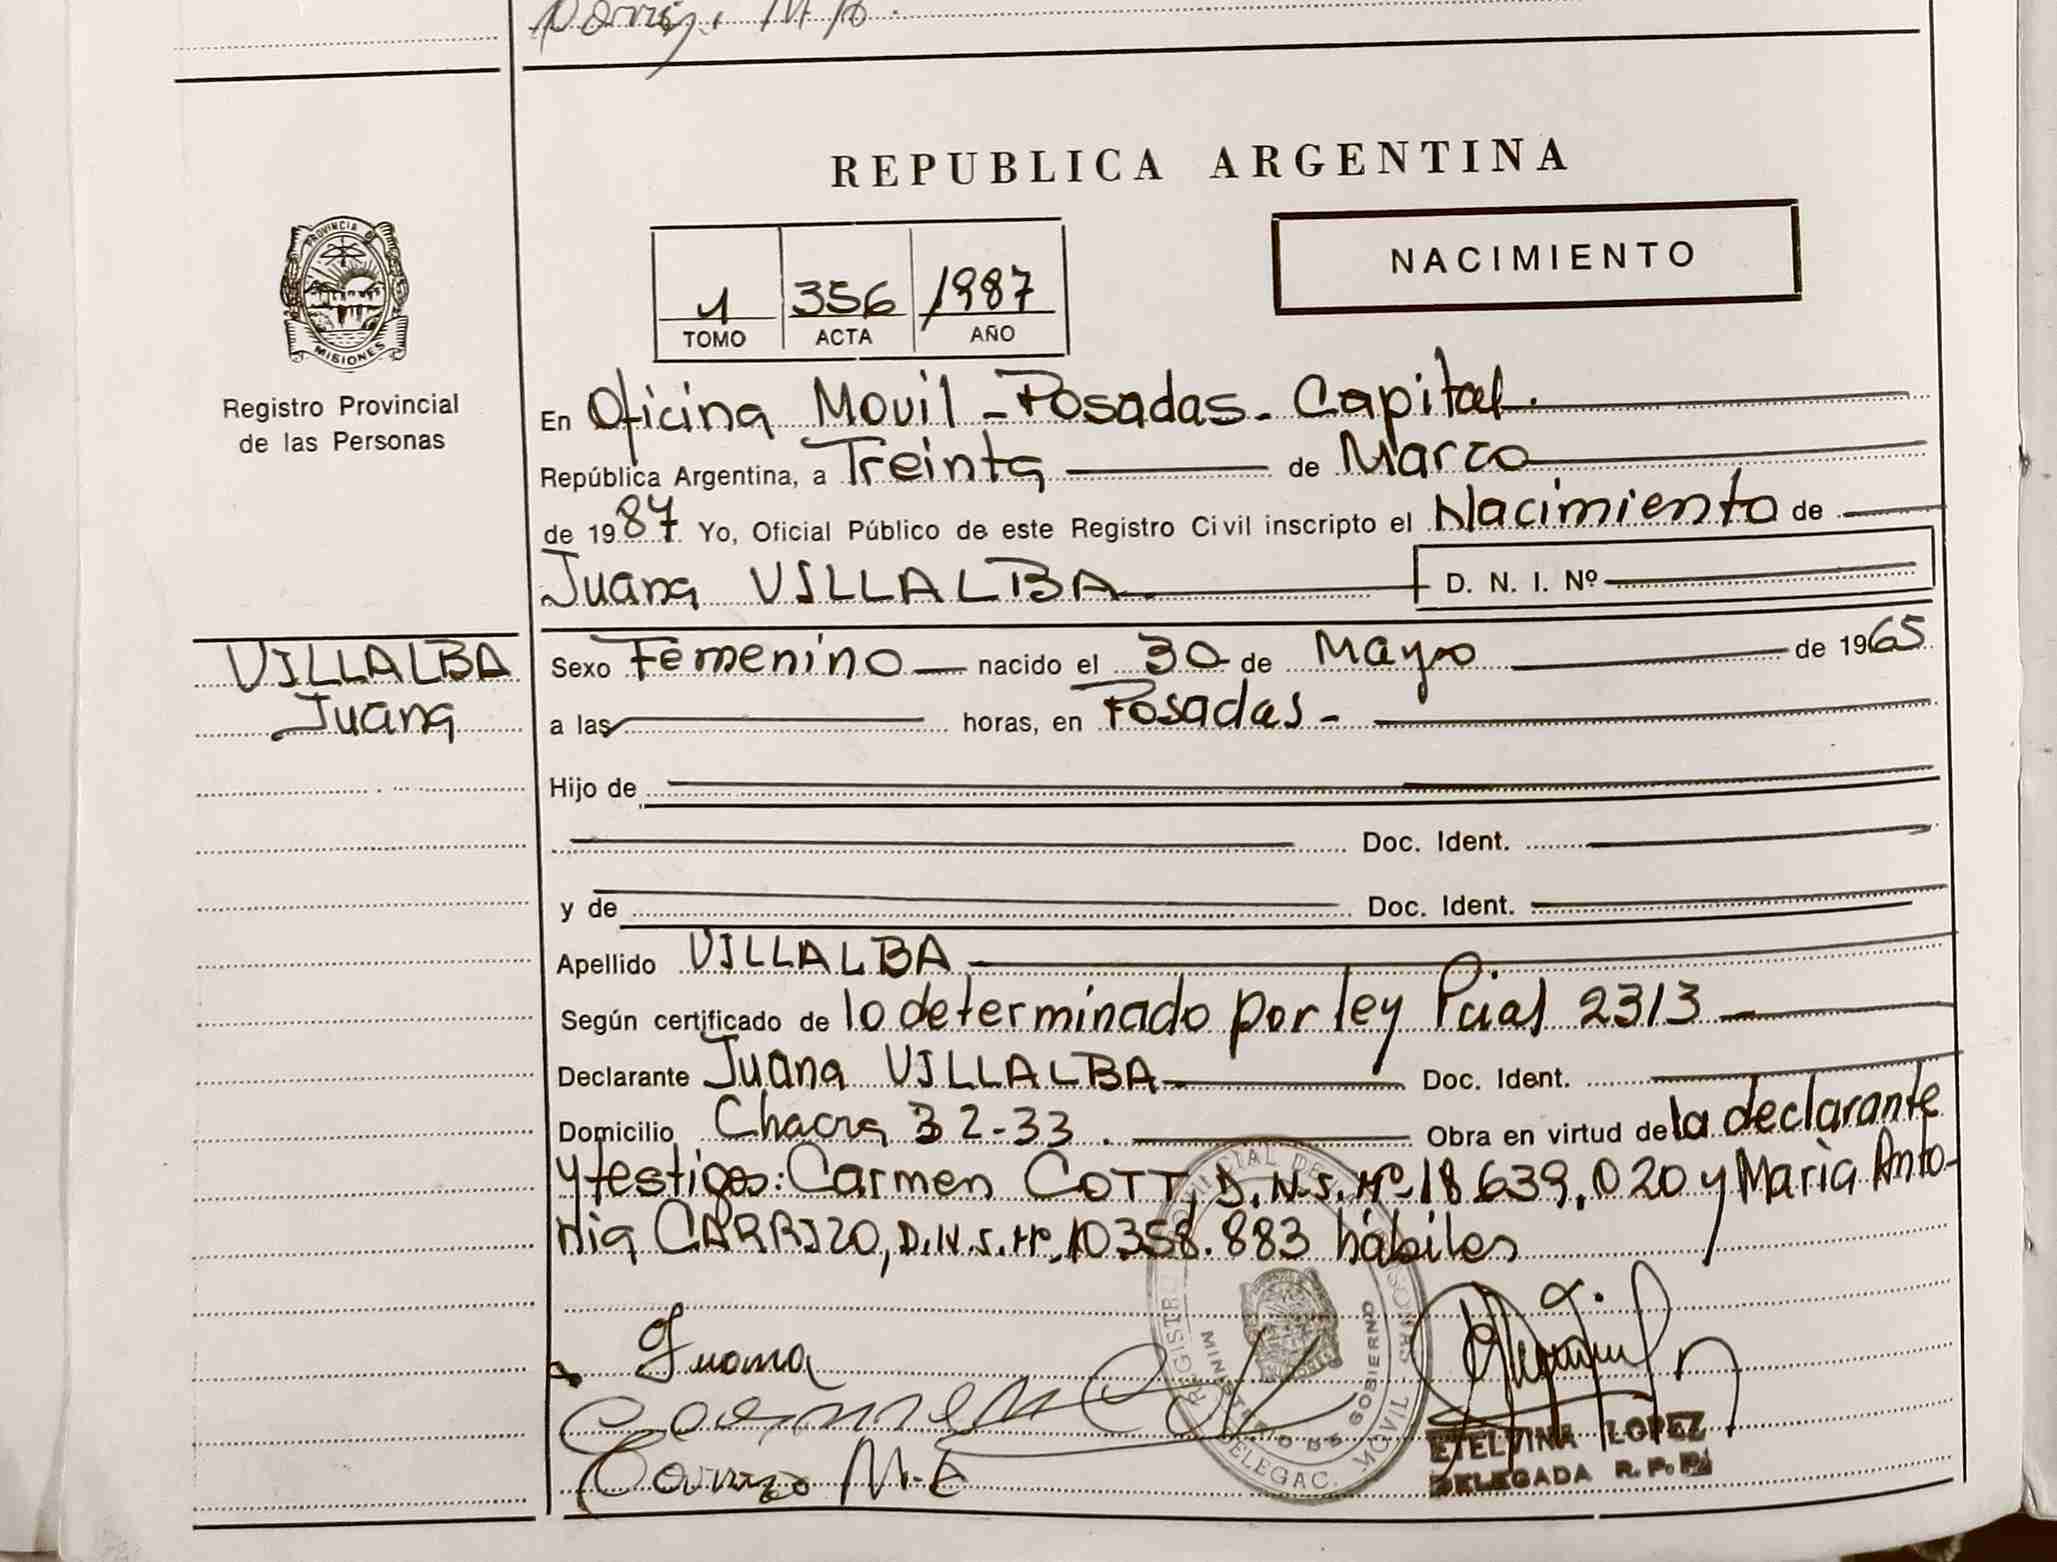 REPUBLICA ARGENTINA
PROVINCIA DE
MISIONES
Registro Provincial
de las Personas
1 356 1987
TOMO ACTA AÑO
NACIMIENTO
En Oficina Movil - Posadas - Capital.
República Argentina, a Treinta de Marzo
de 1987 Yo, Oficial Público de este Registro Civil inscripto el Nacimiento de
Juana VILLALBA D. N. I. Nº
VILLALBA
Juana
Sexo Femenino nacido el 30 de Mayo de 1965
a las horas, en Posadas -
Hijo de
Doc. Ident.
y de Doc. Ident.
Apellido VILLALBA
Según certificado de lo determinado por ley Pcial 2313
Declarante Juana VILLALBA Doc. Ident.
Domicilio Chacra 32-33. Obra en virtud de la declarante
y testigos: Carmen COTT, D.N.I. Nº 18.639.020 y Maria Anto-
nia CARRIZO, D.N.I. Nº 10358.883 hábiles
Juana
Carmen
Carrizo M.
MINISTERIO DE GOBIERNO
DELEGAC. MOVIL
ETELVINA LOPEZ
DELEGADA R. P. P.